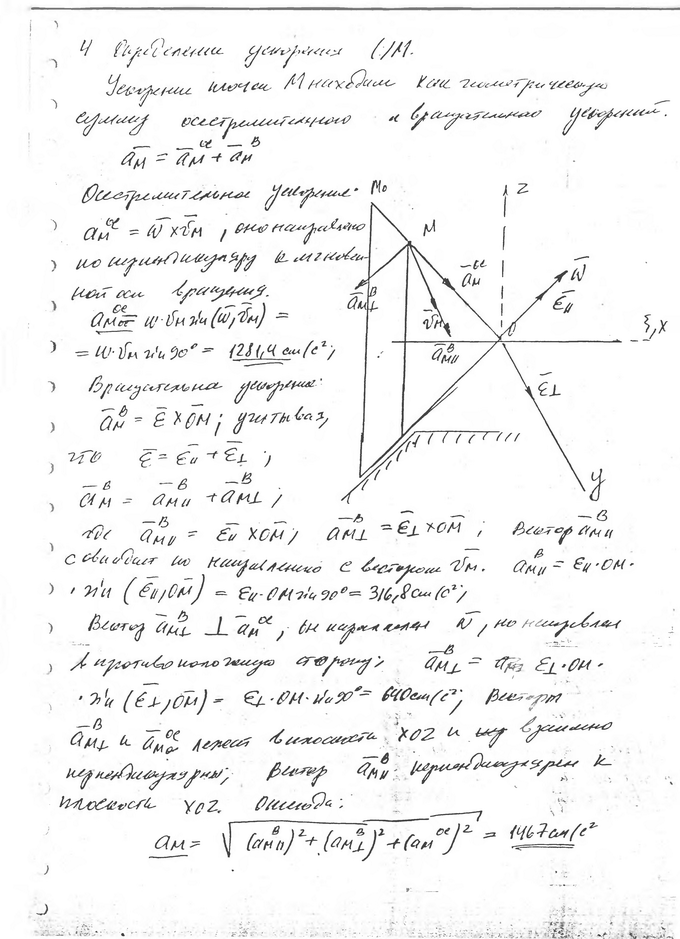 4 Определение ускорения (·)M.
Ускорение точки M находим как геометрическую
сумму осестремительного и вращательного ускорений.
a̅м = a̅м^ос + a̅м^в
Осестремительное ускорение:
a̅м^ос = ω̅ × v̅м, оно направлено
по перпендикуляру к мгновен-
ной оси вращения.
ω·vм sin(ω̅, v̅м) =
= ω·vм sin 90° = 1281,4 см/с²;
Вращательна ускорение:
a̅м^в = ε̅ × O̅M̅; учитывая,
что ε̅ = ε̅॥ + ε̅⊥;
a̅м^в = a̅м॥^в + a̅м⊥^в;
где a̅м॥^в = ε̅॥ × O̅M̅; a̅м⊥^в = ε̅⊥ × O̅M̅; Вектор a̅м॥^в
совпадает по направлению с вектором v̅м. aм॥^в = ε॥·OM·
·sin(ε̅॥, O̅M̅) = ε॥·OM sin 90° = 316,8 см/с²;
Вектор a̅м⊥^в ⊥ a̅м^ос, он параллелен ω̅, но направлен
в противоположную сторону; a̅м⊥^в = ε⊥·OM·
·sin(ε̅⊥, O̅M̅) = ε⊥·OM·sin 90° = 640 см/с²; Векторы
a̅м⊥^в и a̅м^ос лежат в плоскости XOZ и взаимно
перпендикулярны; Вектор a̅м॥^в перпендикулярен к
плоскости XOZ. Отсюда:
aм = √((aм॥^в)² + (aм⊥^в)² + (aм^ос)²) = 1467 см/с²
M₀
Z
M
a̅м^ос
ω̅
ε̅॥
a̅м⊥^в
v̅м
a̅м॥^в
O
ξ, X
ε̅⊥
y